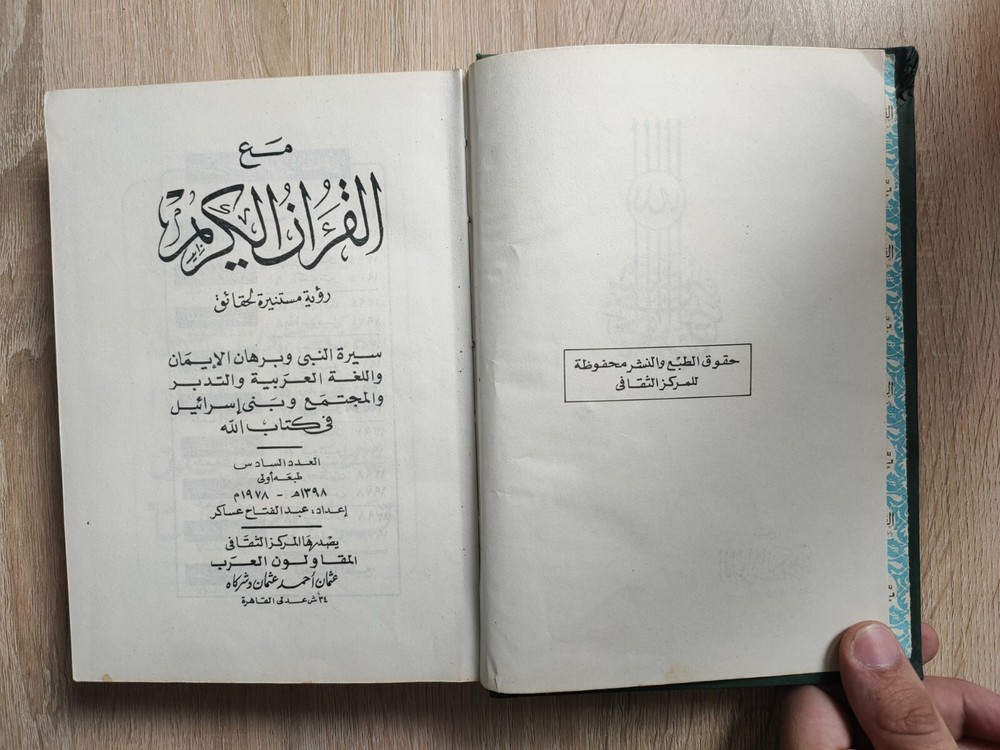 حقوق الطبع والنشر محفوظة
للمركز الثقافى
مع
القرآن الكريم
رؤية مستنيرة لحقائق
سيرة النبى وبرهان الإيمان
واللغة العربية والتدبر
والمجتمع وبنى إسرائيل
فى كتاب الله
العدد السادس
طبعه أولى
١٣٩٨هـ - ١٩٧٨م
إعداد: عبد الفتاح عساكر
يصدرها المركز الثقافى
المقاولون العرب
عثمان أحمد عثمان وشركاه
٣٤ ش عدلى القاهرة